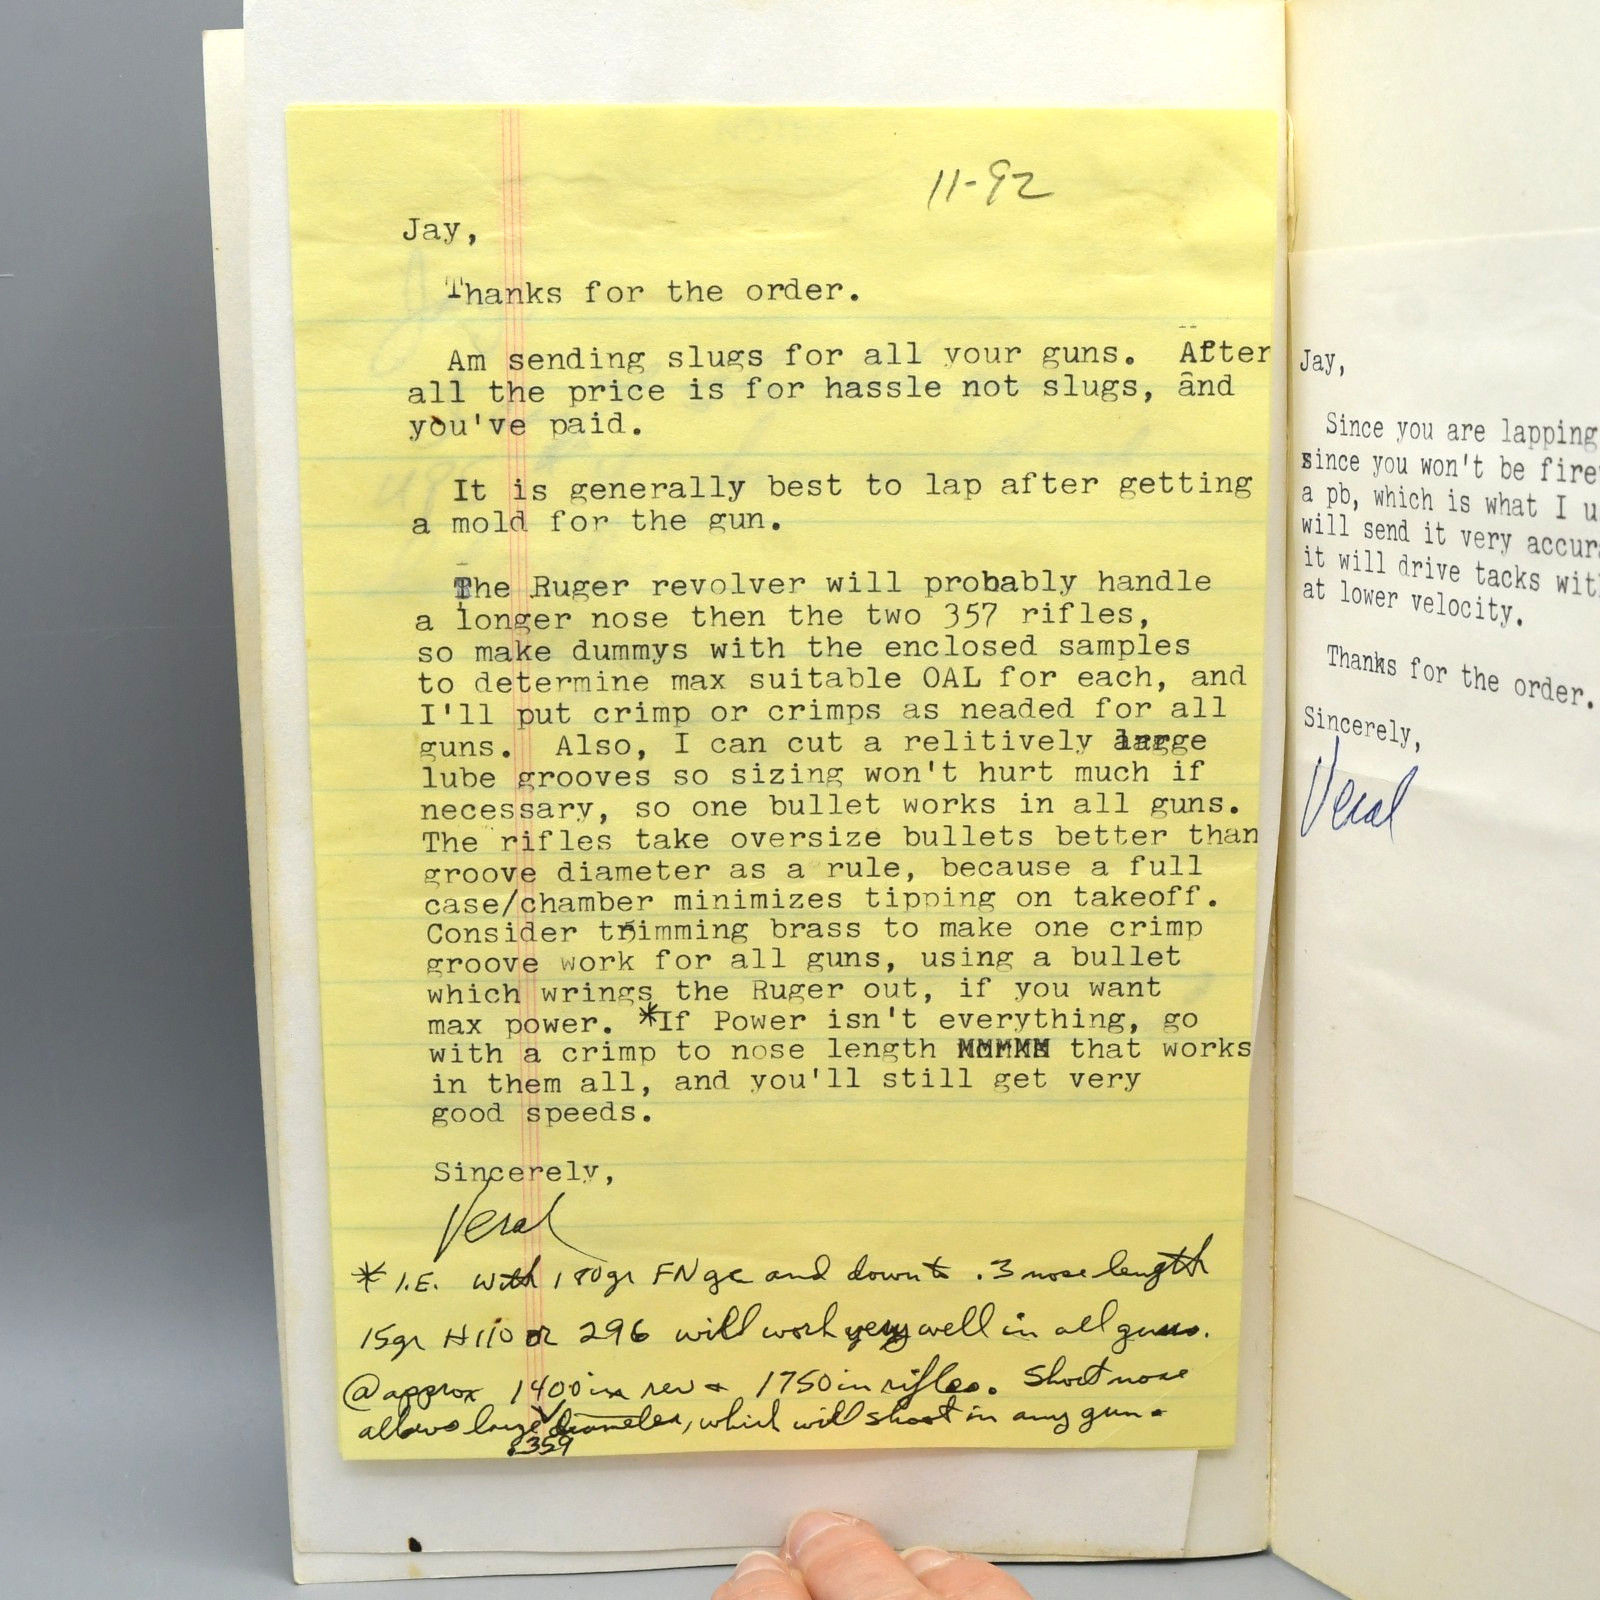 11-92
Jay,
Thanks for the order.
Am sending slugs for all your guns. After
all the price is for hassle not slugs, and
you've paid.
It is generally best to lap after getting
a mold for the gun.
The Ruger revolver will probably handle
a longer nose then the two 357 rifles,
so make dummys with the enclosed samples
to determine max suitable OAL for each, and
I'll put crimp or crimps as needed for all
guns. Also, I can cut a relitively large
lube grooves so sizing won't hurt much if
necessary, so one bullet works in all guns.
The rifles take oversize bullets better than
groove diameter as a rule, because a full
case/chamber minimizes tipping on takeoff.
Consider trimming brass to make one crimp
groove work for all guns, using a bullet
which wrings the Ruger out, if you want
max power. *If Power isn't everything, go
with a crimp to nose length that works
in them all, and you'll still get very
good speeds.
Sincerely,
Veral
* I.E. with 180gr FN gc and down to .3 nose length
15gr H110 or 296 will work very well in all guns.
@ approx 1400 in rev & 1750 in rifles. Short nose
allows large diameter, which will shoot in any gun.
.359
Jay,
Since you are lapping
since you won't be fire
a pb, which is what I u
will send it very accur
it will drive tacks wit
at lower velocity.
Thanks for the order.
Sincerely,
Veral